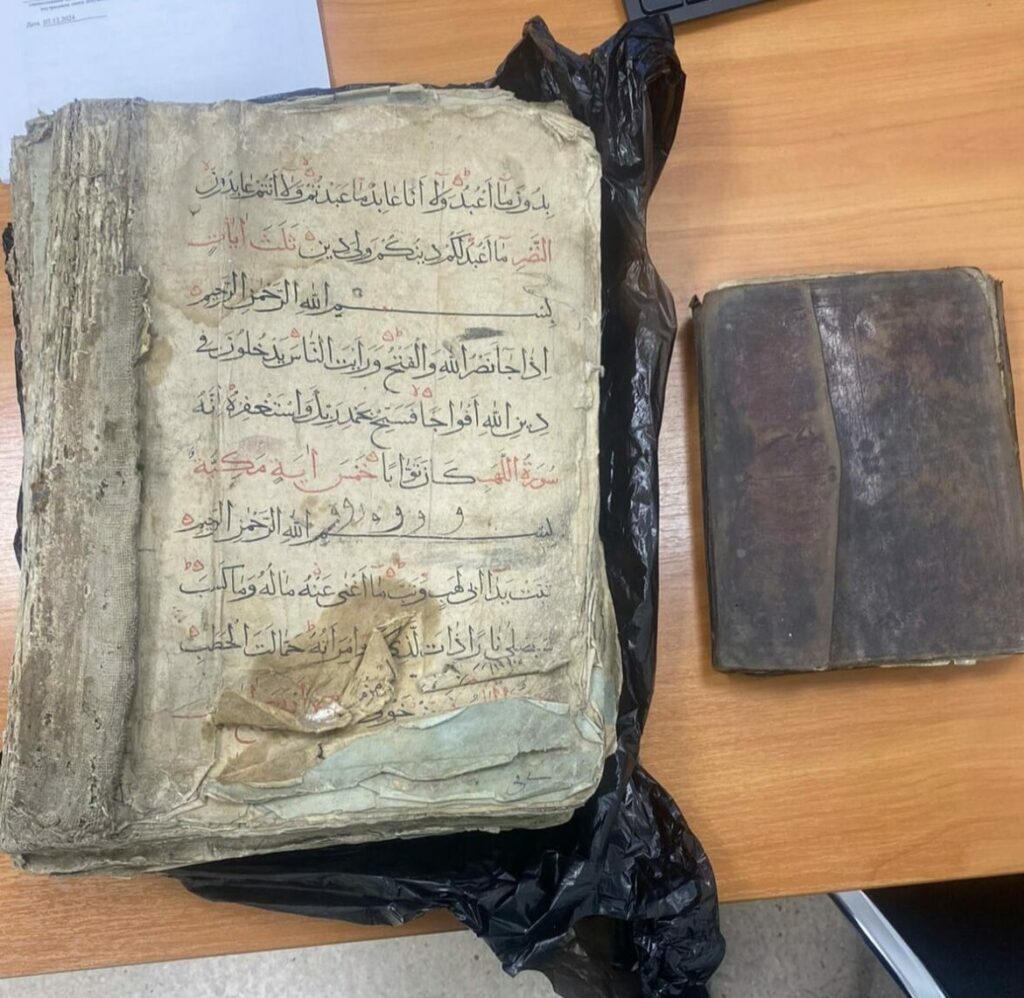 Дата
بدُونَ مَٓا اَعْبُدُ وَلَٓا اَنَا عَابِدٌ مَا عَبَدْتُمْ وَلَٓا اَنْتُمْ عَابِدُونَ
النَّصْرِ مَٓا اَعْبُدُ لَكُمْ دِينُكُمْ وَلِيَ دِينِ ثَلَثَ اٰيَاتٍ
بِسْمِ اللهِ الرَّحْمٰنِ الرَّحِيمِ
اِذَا جَٓا نَصْرُ اللهِ وَالْفَتْحُ وَرَاَيْتَ النَّاسَ يَدْخُلُونَ فِى
دِينِ اللهِ اَفْوَاجًا فَسَبِّحْ بِحَمْدِ رَبِّكَ وَاسْتَغْفِرْهُ اِنَّهُ
سُورَةُ اللَّهَبِ كَانَ تَوَّابًا خَمْسَ اٰيَةٍ مَكِّيَّةٌ
بِسْمِ اللهِ الرَّحْمٰنِ الرَّحِيمِ
تَبَّتْ يَدَٓا اَبِى لَهَبٍ وَتَبَّ مَٓا اَغْنٰى عَنْهُ مَالُهُ وَمَا كَسَبَ
نَارًا ذَاتَ وَامْرَاَتُهُ حَمَّالَتَ الْحَطَبِ